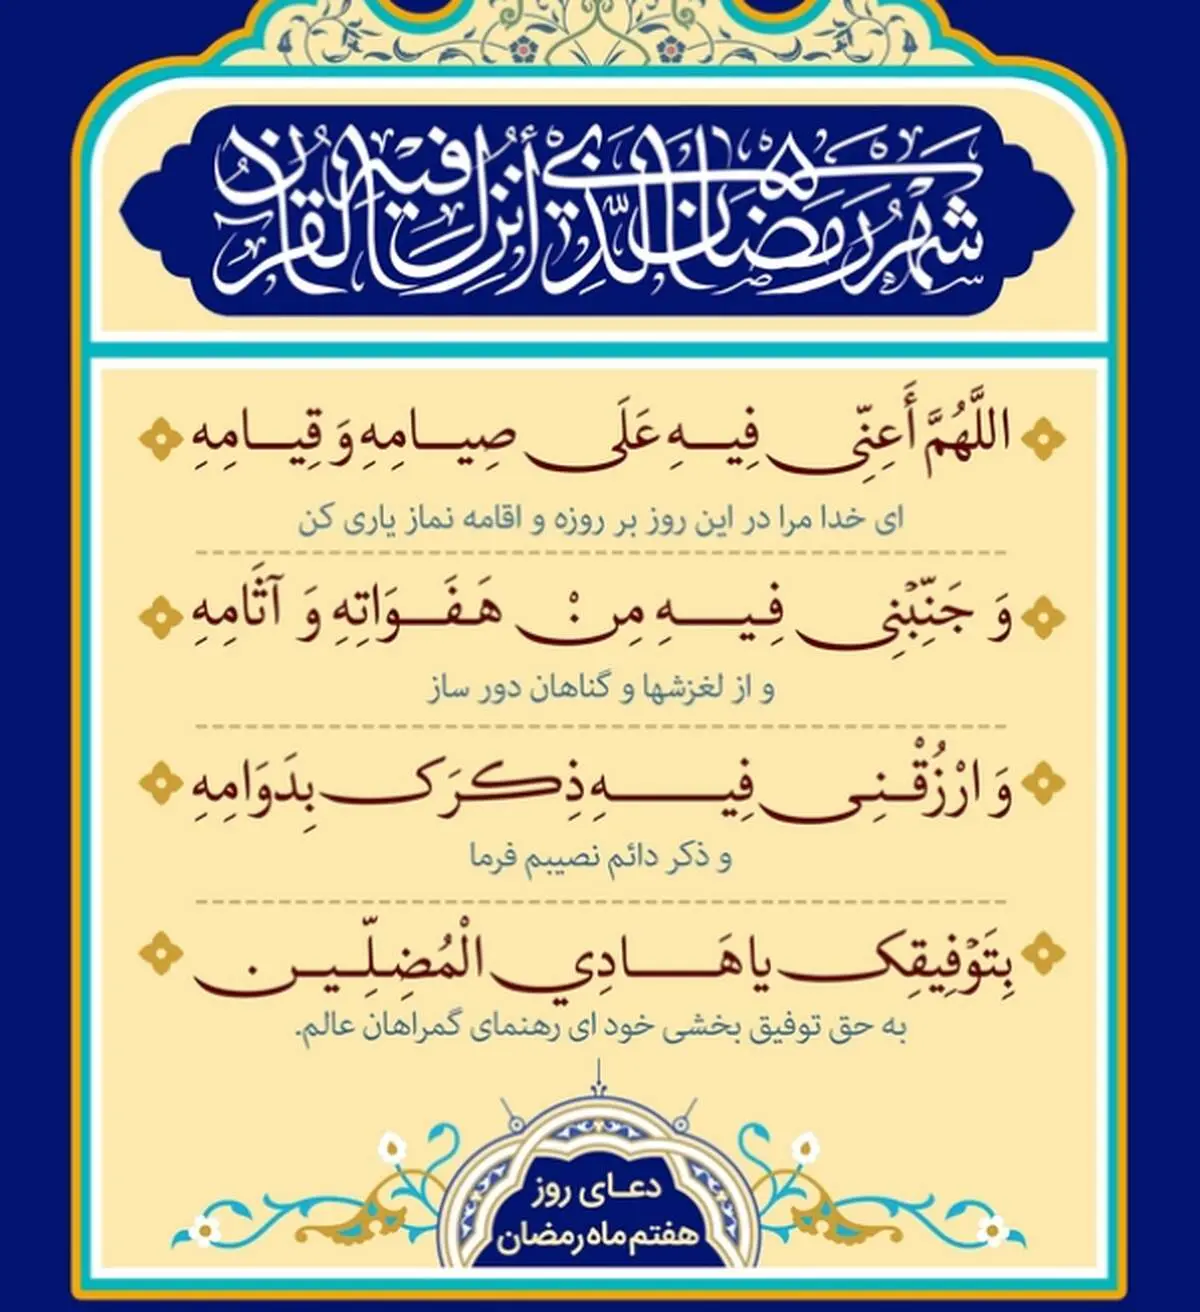 شهر رمضان الذي أنزل فيه القرآن
اللَّهُمَّ أَعِنِّی فِیهِ عَلَی صِیامِهِ وَ قِیامِهِ
ای خدا مرا در این روز بر روزه و اقامه نماز یاری کن
وَ جَنِّبْنِی فِیهِ مِنْ هَفَوَاتِهِ وَ آثَامِهِ
و از لغزشها و گناهان دور ساز
وَ ارْزُقْنِی فِیهِ ذِکْرَکَ بِدَوَامِهِ
و ذکر دائم نصیبم فرما
بِتَوْفِیقِکَ یا هَادِي الْمُضِلِّینَ
به حق توفیق بخشی خود ای رهنمای گمراهان عالم.
دعای روز
هفتم ماه رمضان